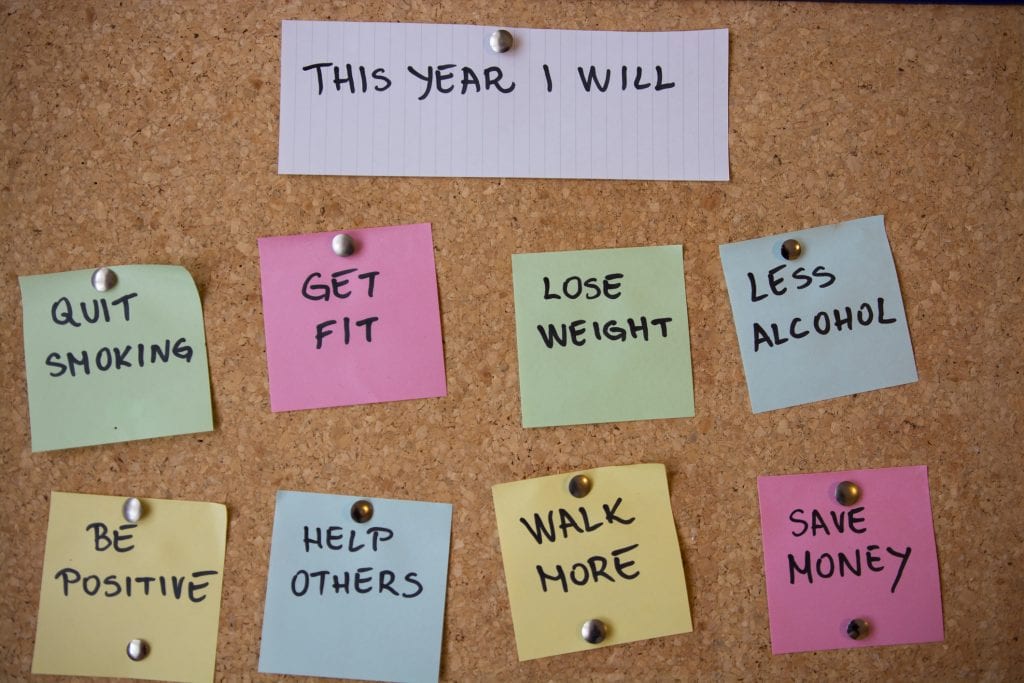 THIS YEAR I WILL
QUIT
SMOKING
GET
FIT
LOSE
WEIGHT
LESS
ALCOHOL
BE
POSITIVE
HELP
OTHERS
WALK
MORE
SAVE
MONEY